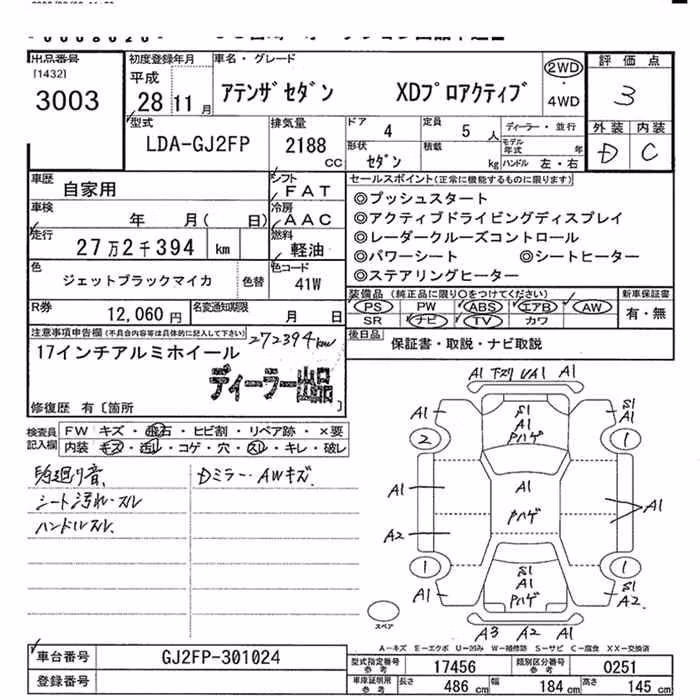 出品番号
[1432]
3003
初度登録年月
平成
28年11月
車名・グレード
アテンザセダン XDプロアクティブ
2WD
・
4WD
評価点
3
外装 内装
D C
型式
LDA-GJ2FP
排気量
2188
CC
ドア 4
定員 5 人
ディーラー・並行
形状
セダン
積載
kg
モデル年式 年
ハンドル 左・右
車歴
自家用
シフト
FAT
車検
年 月( 日)
冷房
AAC
走行
27万2千394 km
燃料
軽油
色
ジェットブラックマイカ
色替
色コード
41W
R券
12,060円
名変通知期限
月 日
セールスポイント(正常に機能するものに限ります)
◎プッシュスタート
◎アクティブドライビングディスプレイ
◎レーダークルーズコントロール
◎パワーシート ◎シートヒーター
◎ステアリングヒーター
装備品(純正品に限り○をつけてください)
PS PW ABS エアB AW
SR ナビ TV カワ
新車保証書
有・無
後日品
保証書・取説・ナビ取説
注意事項申告欄(不具合内容等は具体的に記入して下さい)
272394km
17インチアルミホイール
ディーラー出品
修復歴 有〔箇所 〕
検査員記入欄
FW キズ・飛石・ヒビ割・リペア跡・×要
内装 キズ・汚れ・コゲ・穴・スレ・キレ・破レ
シート汚れ・スレ
ハンドルスレ
Dミラー・AWキズ
A1 A1
A1 S1 A1 Pハゲ S1 A1
2 1
A1 A1 A1
A2 Pハゲ
1 1
A1 S1 A1 Pハゲ S1 A2
スペア
A3 A2 A1
A-キズ E-エクボ U-凹み W-補修跡 S-サビ C-腐食 XX-交換済
車台番号
GJ2FP-301024
登録番号
型式指定番号
参考
17456
類別区分番号
参考
0251
車庫証明用
参考
長さ 486 cm
幅 184 cm
高さ 145 cm